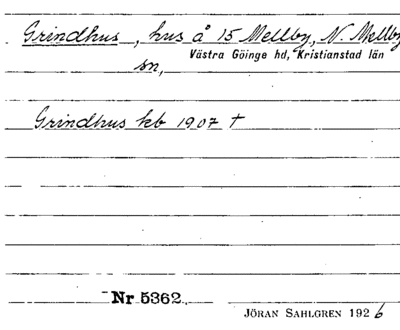 Grindhus, hus å 15 Mellby, N. Mellby
Västra Göinge hd, Kristianstad län
sn,
Grindhus kb 1907 †
Nr 5362
JÖRAN SAHLGREN 1926